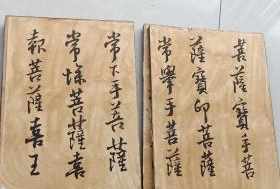 菩薩寶手菩
薩寶印菩薩
常舉手菩薩
常下手菩薩
常慘菩薩喜
菩薩喜王